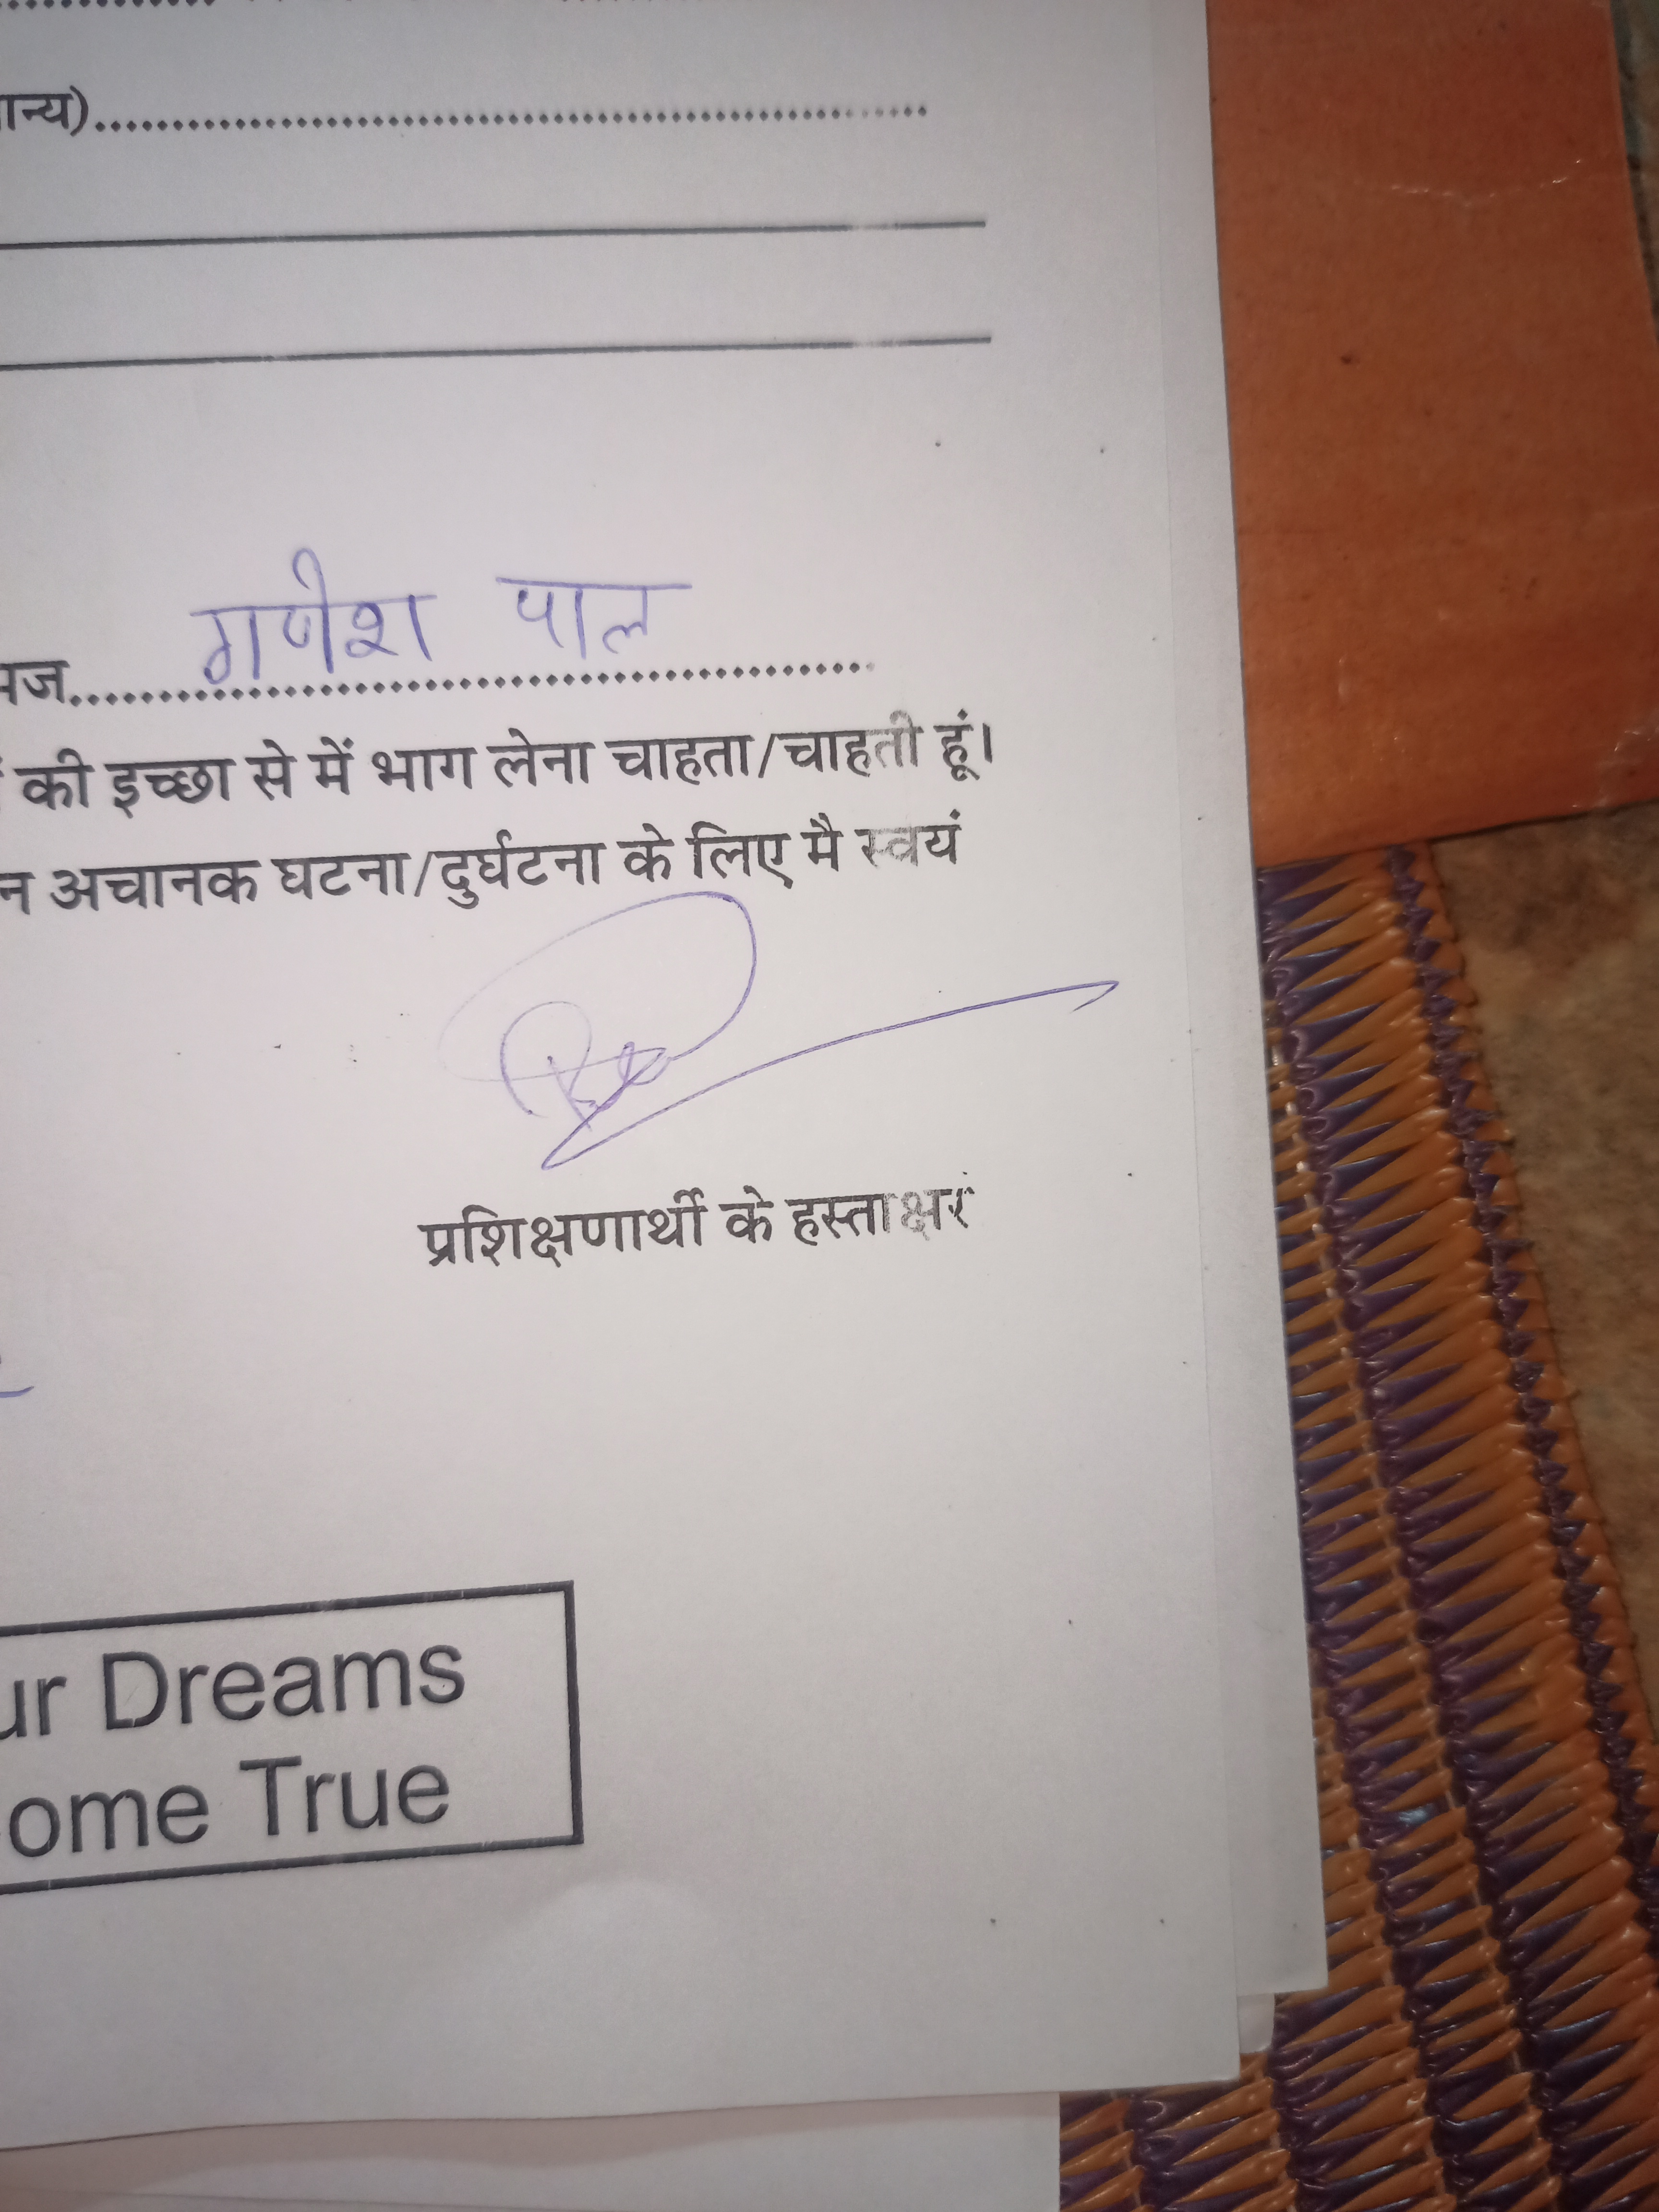 ान्य)
गणेश पाल
की इच्छा से में भाग लेना चाहता/चाहती हूं।
न अचानक घटना/दुर्घटना के लिए मै स्वयं
प्रशिक्षणार्थी के हस्ताक्षर
ur Dreams
ome True